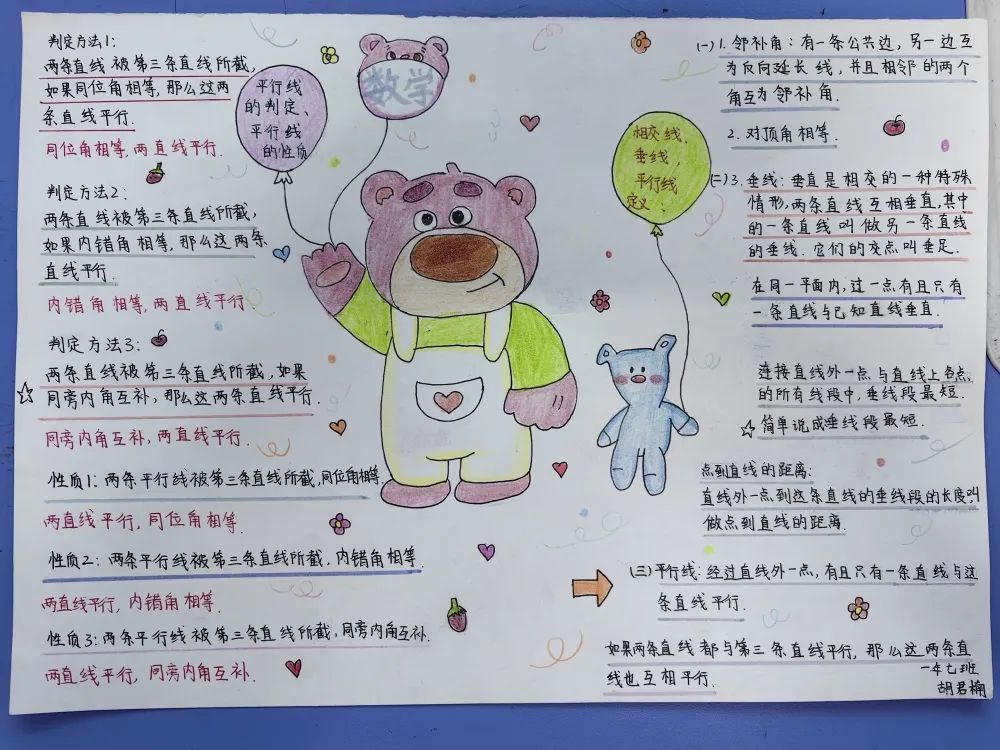 判定方法1:
两条直线被第三条直线所截,
如果同位角相等,那么这两
条直线平行.
同位角相等,两直线平行.
判定方法2:
两条直线被第三条直线所截,
如果内错角相等,那么这两条
直线平行.
内错角相等,两直线平行
判定方法3:
两条直线被第三条直线所截,如果
同旁内角互补,那么这两条直线平行.
同旁内角互补,两直线平行.
性质1:两条平行线被第三条直线所截,同位角相等.
两直线平行,同位角相等.
性质2:两条平行线被第三条直线所截,内错角相等.
两直线平行,内错角相等.
性质3:两条平行线被第三条直线所截,同旁内角互补.
两直线平行,同旁内角互补.
平行线
的判定、
平行线
的性质
数学
相交线,
垂线,
平行线
定义
(一)1.邻补角:有一条公共边,另一边互
为反向延长线,并且相邻的两个
角互为邻补角.
2.对顶角相等.
(二)3.垂线:垂直是相交的一种特殊
情形,两条直线互相垂直,其中
的一条直线叫做另一条直线
的垂线.它们的交点叫垂足.
在同一平面内,过一点有且只有
一条直线与已知直线垂直.
连接直线外一点与直线上各点
的所有线段中,垂线段最短.
简单说成垂线段最短.
点到直线的距离:
直线外一点到这条直线的垂线段的长度叫
做点到直线的距离.
(三)平行线:经过直线外一点,有且只有一条直线与这
条直线平行.
如果两条直线都与第三条直线平行,那么这两条直
线也互相平行.
七班
胡君楠